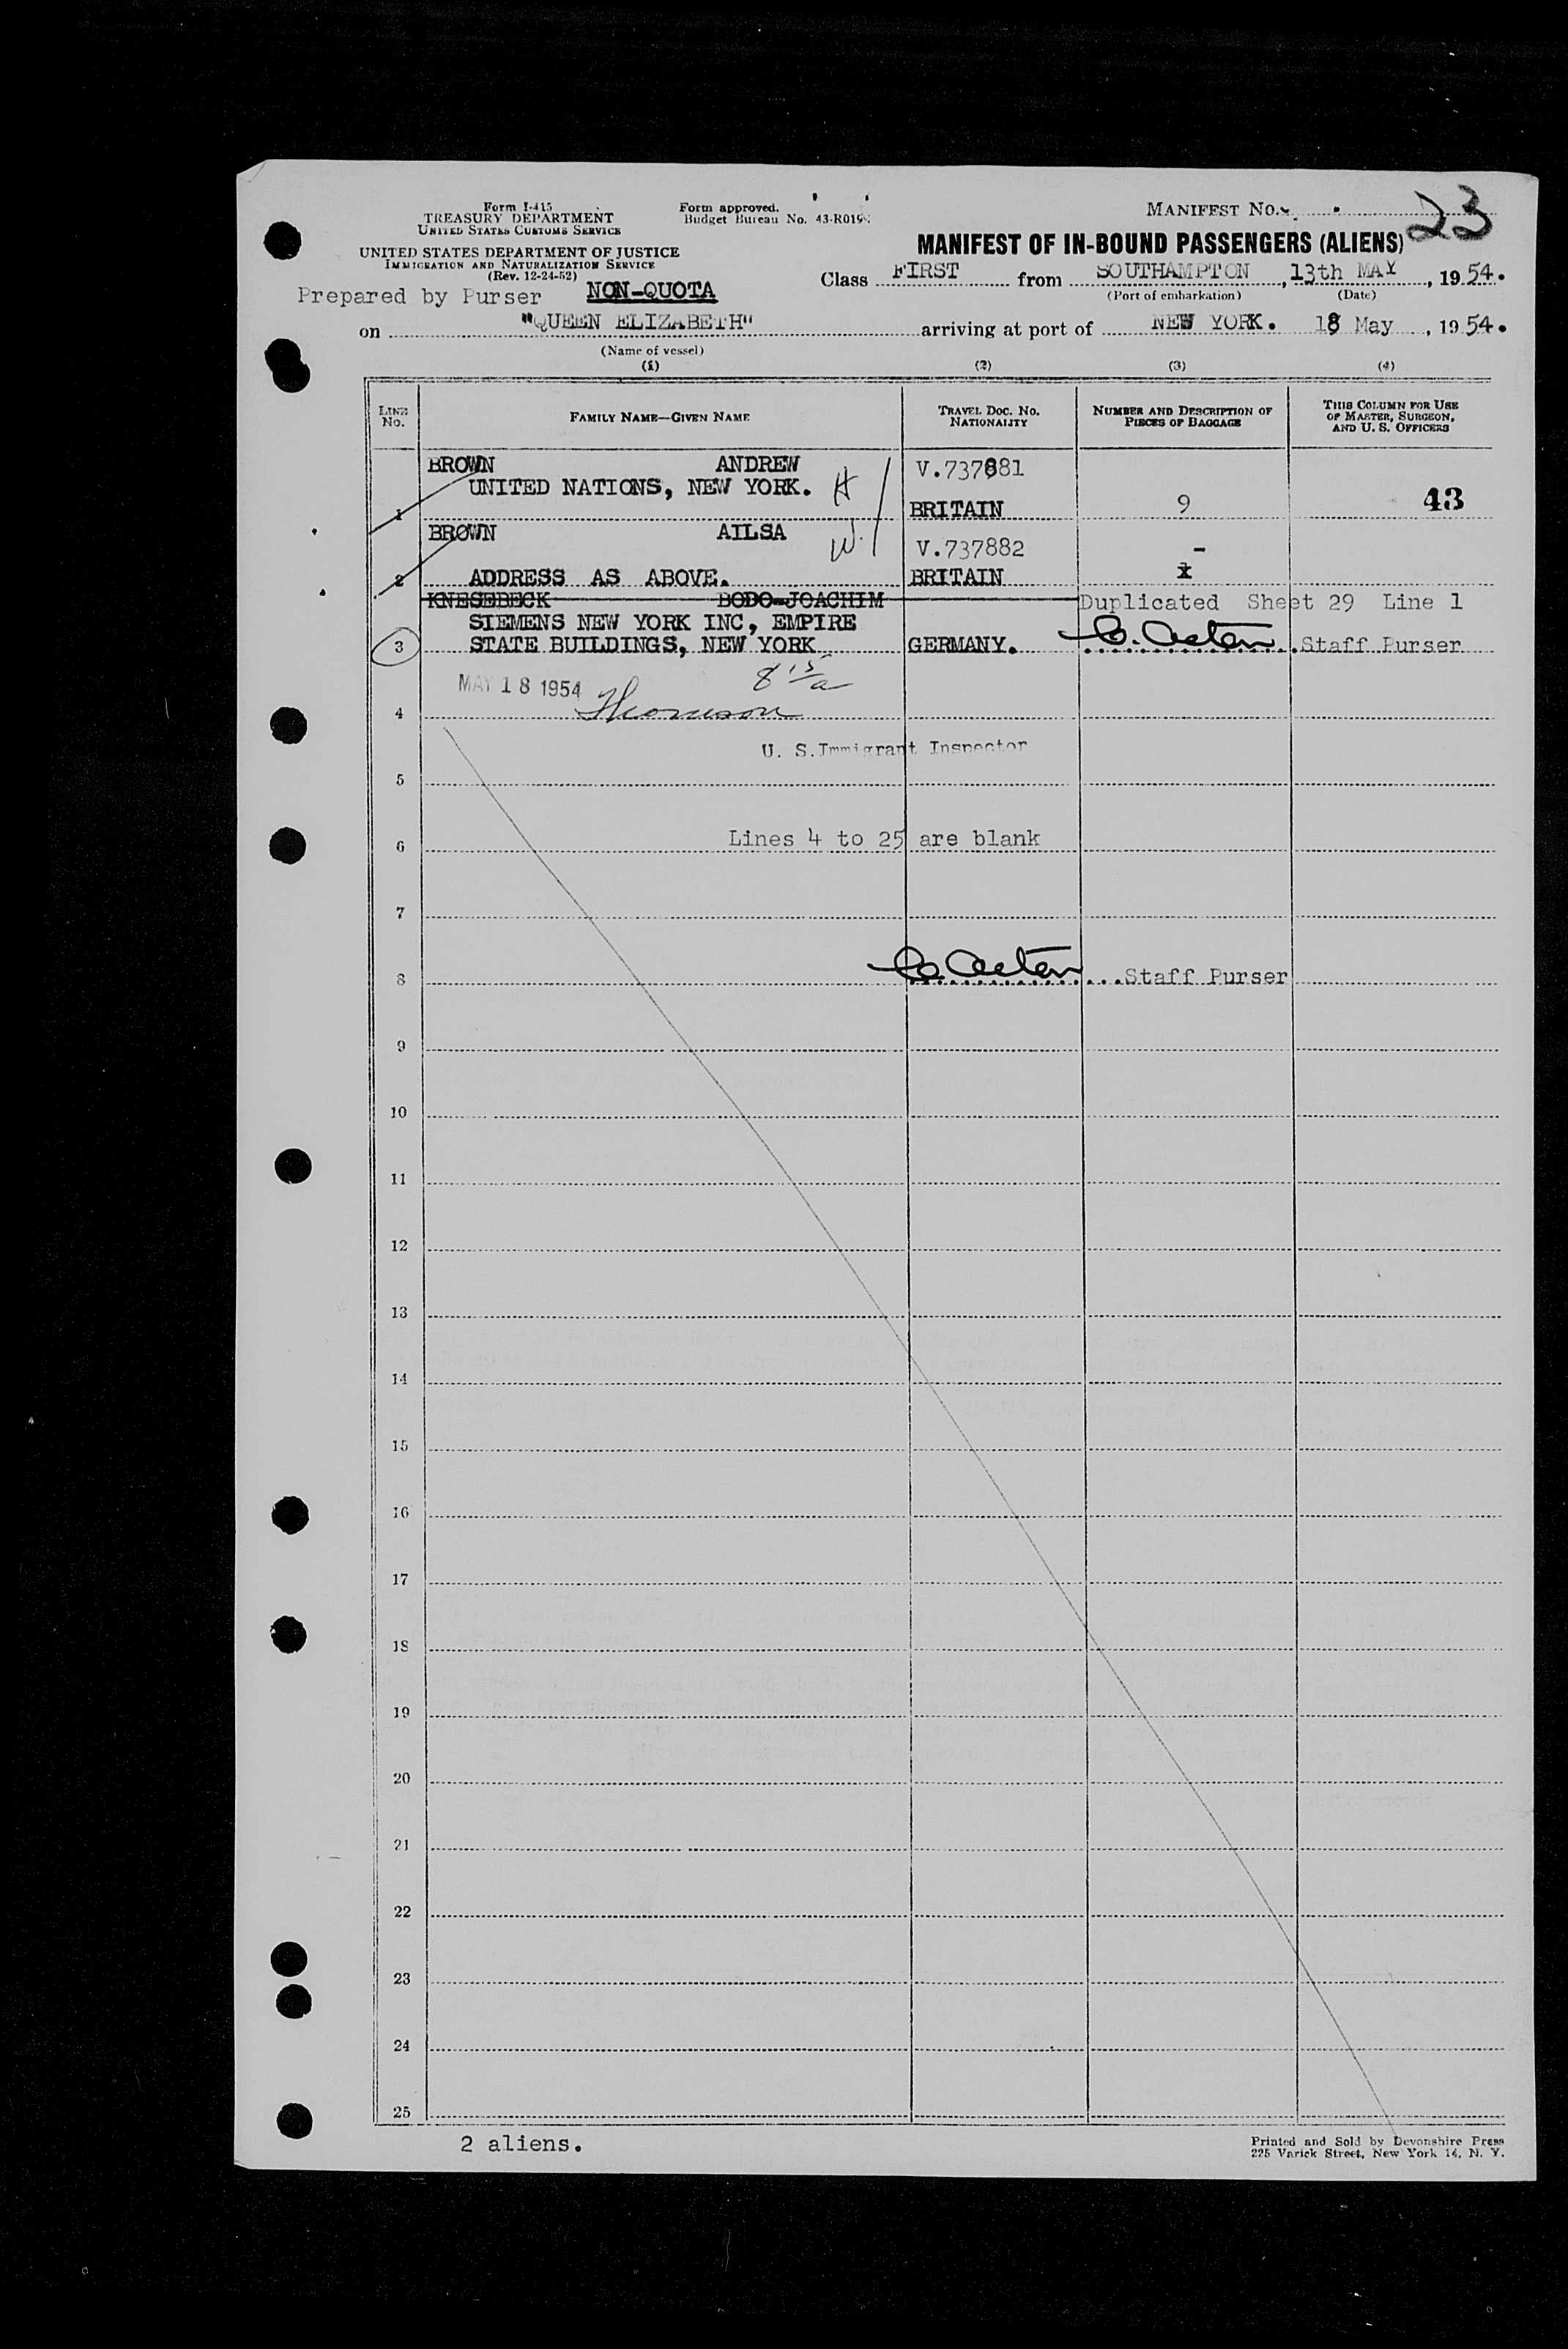 Form I-415
TREASURY DEPARTMENT
UNITED STATES CUSTOMS SERVICE
UNITED STATES DEPARTMENT OF JUSTICE
IMMIGRATION AND NATURALIZATION SERVICE
(Rev. 12-24-52)
Form approved.
Budget Bureau No. 43-R019
MANIFEST NO. 23
MANIFEST OF IN-BOUND PASSENGERS (ALIENS)
Class FIRST from SOUTHAMPTON, 13th MAY, 1954.
(Port of embarkation) (Date)
Prepared by Purser NON-QUOTA
on "QUEEN ELIZABETH" arriving at port of NEW YORK. 18 May, 1954.
(Name of vessel)
(1) (2) (3) (4)
LINE No. FAMILY NAME—GIVEN NAME TRAVEL DOC. NO. NATIONALITY NUMBER AND DESCRIPTION OF PIECES OF BAGGAGE THIS COLUMN FOR USE OF MASTER, SURGEON, AND U. S. OFFICERS
BROWN ANDREW V.737881
UNITED NATIONS, NEW YORK. H
1 BRITAIN 9 43
BROWN AILSA W. V.737882 -
2 ADDRESS AS ABOVE. BRITAIN
KNESEBECK BODO-JOACHIM Duplicated Sheet 29 Line 1
SIEMENS NEW YORK INC, EMPIRE
3 STATE BUILDINGS, NEW YORK GERMANY. Staff Purser
MAY 18 1954 8 15/a
4 Thomson
U. S. Immigrant Inspector
5
Lines 4 to 25 are blank
6
7
8 Staff Purser
9
10
11
12
13
14
15
16
17
18
19
20
21
22
23
24
25
2 aliens.
Printed and Sold by Devonshire Press
225 Varick Street, New York 14, N. Y.